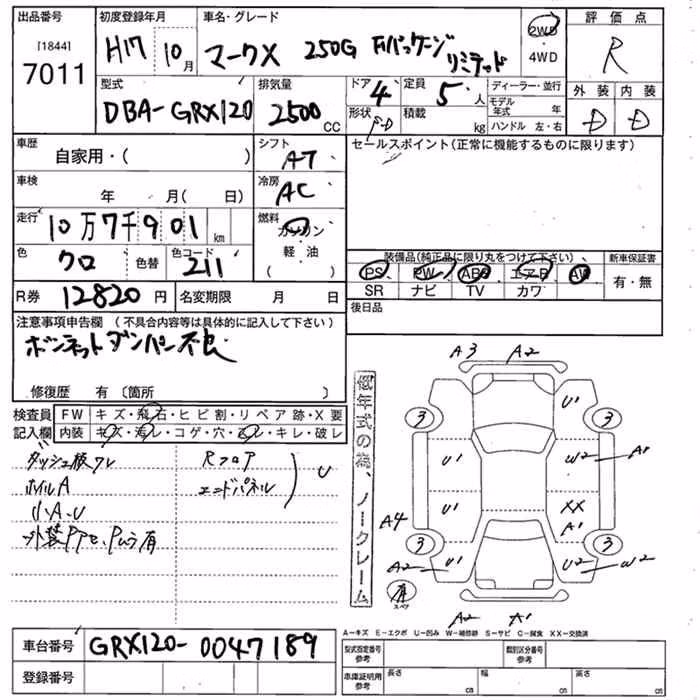 出品番号
[1844]
7011
初度登録年月
H17 10月
車名・グレード
マークX 250G Fパッケージ
リミテッド
2WD
・
4WD
評価点
R
型式
DBA-GRX120
排気量
2500
CC
ドア
4
定員
5人
形状
積載
kg
ディーラー・並行
モデル
年式
年
ハンドル 左・右
外装 内装
D D
車歴
自家用・( )
シフト
AT
セールスポイント(正常に機能するものに限ります)
車検
年 月( 日)
冷房
AC
走行
10万7千901km
燃料
ガソリン
軽油
( )
色
クロ
色替
色コード
211
装備品(純正品に限り丸をつけて下さい)
PS PW ABS エアB AW
SR ナビ TV カワ
新車保証書
有・無
R券 12820円
名変期限 月 日
後日品
注意事項申告欄 (不具合内容等は具体的に記入して下さい)
ボンネットダンパー不良
修復歴 有 〔箇所 〕
検査員
記入欄
FW キズ・飛石・ヒビ割・リペア跡・X要
内装 キズ・汚レ・コゲ・穴・ヌレ・キレ・破レ
ダッシュ板ワレ
Rフロア
U
ホイルA
エンドパネル
小A・U
外装PTセ、Pムラ有
低年式の為、ノークレーム
A3 A2
3 U1 3
U1 W2 A1
U1 XX
A1
A4
3 3
A2 U1 U2 W2
有
スペア
A2 A1
A-キズ E-エクボ U-凹み W-補修跡 S-サビ C-腐食 XX-交換済
車台番号 GRX120-0047189
登録番号
型式指定番号
参考
類別区分番号
参考
車庫証明用
参考
長さ cm
幅 cm
高さ cm